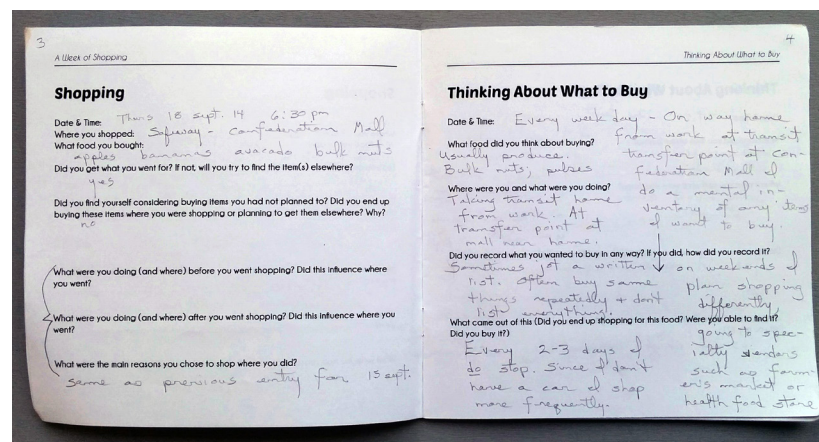 3
A Week of Shopping
Shopping
Date & Time: Thurs 18 sept. 14 6:30 pm
Where you shopped: Safeway - Confederation Mall
What food you bought:
apples bananas avacado bulk nuts
Did you get what you went for? If not, will you try to find the item(s) elsewhere?
yes
Did you find yourself considering buying items you had not planned to? Did you end up
buying these items where you were shopping or planning to get them elsewhere? Why?
no
What were you doing (and where) before you went shopping? Did this influence where
you went?
What were you doing (and where) after you went shopping? Did this influence where you
went?
What were the main reasons you chose to shop where you did?
same as previous entry for 15 sept.
4
Thinking About What to Buy
Thinking About What to Buy
Date & Time: Every week day - On way home
from work at transit
transfer point at Con-
federation Mall I
do a mental in-
ventory of any items
I want to buy.
What food did you think about buying?
Usually produce.
Bulk nuts, pulses
Where were you and what were you doing?
Taking transit home
from work. At
transfer point at
mall near home.
Did you record what you wanted to buy in any way? If you did, how did you record it?
Sometimes jot a written
list. Often buy same
things repeatedly & don't
list everything.
on weekends I
plan shopping
differently,
going to spec-
ialty vendors
such as farm-
er's market or
health food store
What came out of this (Did you end up shopping for this food? Were you able to find it?
Did you buy it?)
Every 2-3 days I
do stop. Since I don't
have a car I shop
more frequently.